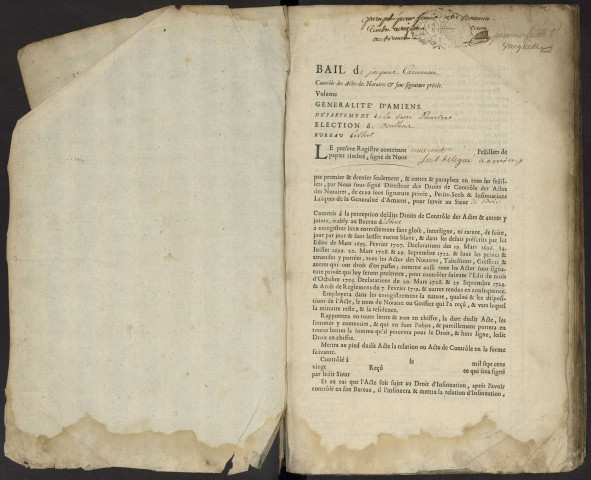 BAIL de jacques
Contrôle des Actes des Notaires & sous signature privée.
Volume
GENERALITÉ D'AMIENS.
DÉPARTEMENT de la
ELECTION de Doullens
BUREAU
LE present Registre contenant Feüillets de
papier timbré, signé de Nous Subdelegué
par premier & dernier seulement, & cottez & paraphez en tous les feüil-
lets, par Nous sous-signé Directeur des Droits de Contrôle des Actes
des Notaires, de ceux sous signature privée, Petits-Seels & Insinuations
Laïques de la Generalité d'Amiens, pour servir au Sieur
Commis à la perception desdits Droits de Contrôle des Actes & autres y
joints, étably au Bureau
à enregistrer bien correctement sans glose, interligne, ni rature, de suite,
jour par jour & sans laisser aucun blanc, & dans les delais préscrits par les
Edits de Mars 1693. Fevrier 1707. Declarations des 19. Mars 1696. 14.
Juillet 1699. 20. Mars 1708. & 29. Septembre 1722. & sous les peines &
amendes y portées, tous les Actes des Notaires, Tabellions, Greffiers &
autres qui ont droit d'en passer; comme aussi tous les Actes sous signa-
ture privée qui luy seront presentez, pour contrôler suivant l'Edit du mois
d'Octobre 1705. Declarations du 20. Mars 1708. & 29 Septembre 1722.
& Arrêt de Reglement du 7. Fevrier 1719. & autres rendus en consequence.
Employera dans les enregistremens la nature, qualité & les disposi-
tions de l'Acte, le nom du Notaire ou Greffier qui l'a reçû, & vers lequel
la minute reste, & sa residence.
Rapportera en toute lettre & non en chiffre, la date dudit Acte, les
sommes y contenuës, & qui en font l'objet, & pareillement portera en
toutes lettres la somme qu'il percevra pour le Droit, & hors ligne, ledit
Droit en Chiffre.
Mettra au pied dudit Acte la relation ou Acte de Contrôle en la forme
suivante.
Contrôlé à le mil sept cens
vingt Reçû ce qui sera signé
par ledit Sieur
Et au cas que l'Acte soit sujet au Droit d'Insinuation, après l'avoir
contrôlé en son Bureau, il l'insinuëra & mettra la relation d'Insinuation,